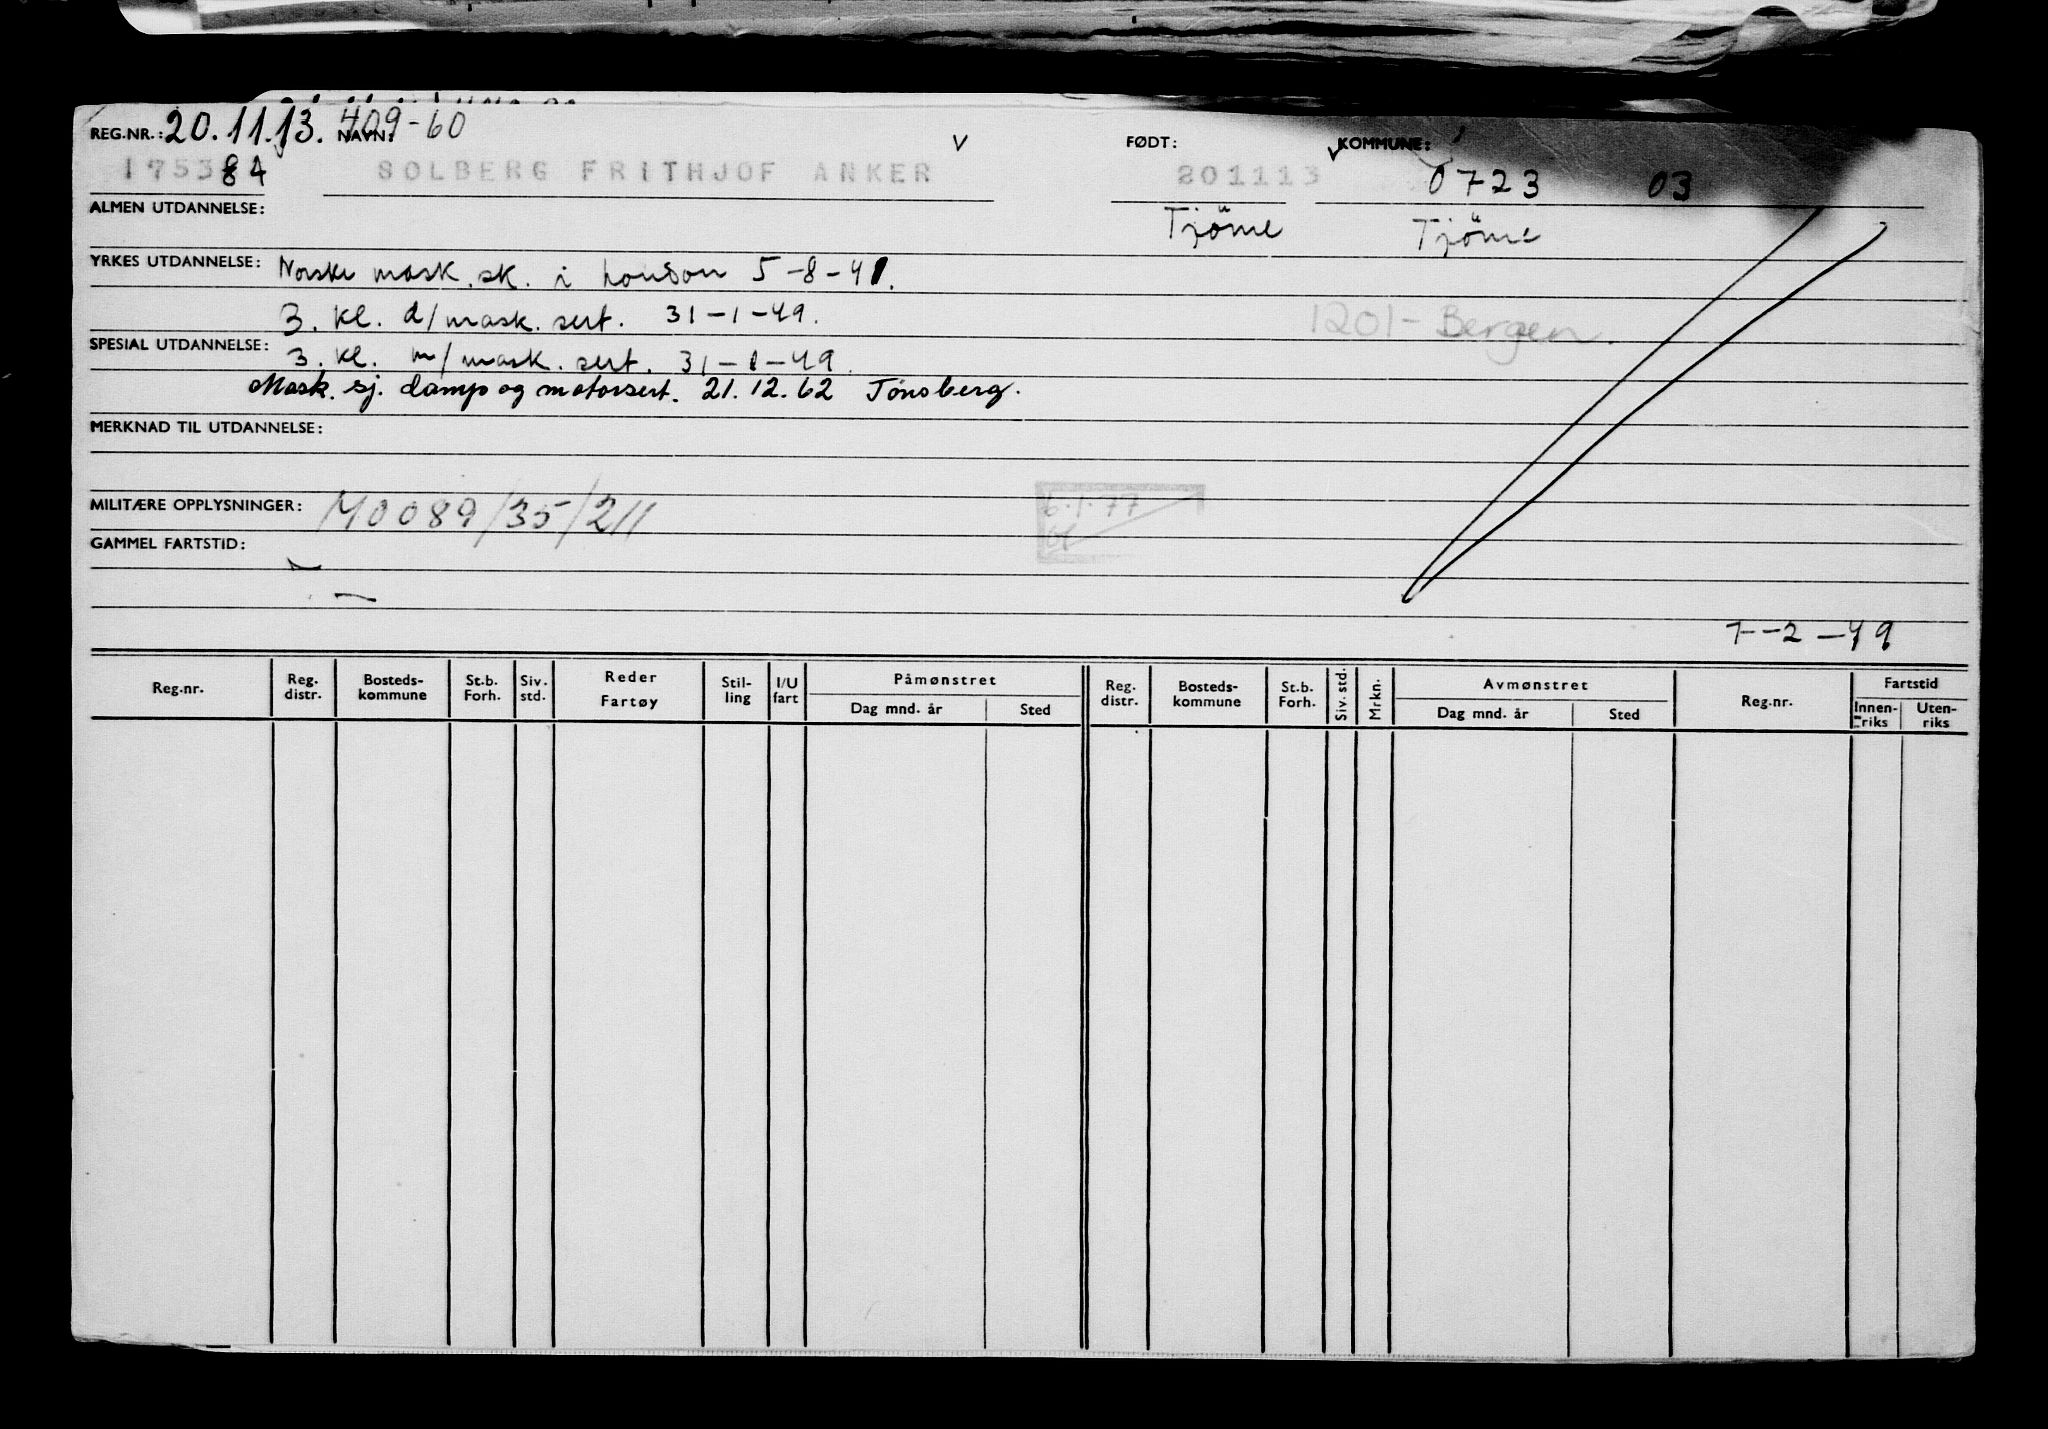 REG.NR.: 20.11.13. 409-60 NAVN: v FØDT: v KOMMUNE:
175384 SOLBERG FRITHJOF ANKER 201113 0723 03
ALMEN UTDANNELSE: Tjöme Tjöme
YRKES UTDANNELSE: Norske mask.sk. i London 5-8-41.
3. kl. d/mask. sert. 31-1-49. 1201- Bergen.
SPESIAL UTDANNELSE: 3. kl. m/mask. sert. 31-1-49.
Mask. sj. damp og motorsert. 21.12.62 Tønsberg.
MERKNAD TIL UTDANNELSE:
MILITÆRE OPPLYSNINGER: M0089/35/211 6.1.77
GAMMEL FARTSTID:
7-2-49
Reg.nr. Reg. distr. Bosteds-kommune St.b. Forh. Siv. std. Reder Fartøy Stil-ling I/U fart Påmønstret Dag mnd. år Sted Reg. distr. Bosteds-kommune St.b. Forh. Siv. std. Mrkn. Avmønstret Dag mnd. år Sted Reg.nr. Fartstid Innen-riks Uten-riks